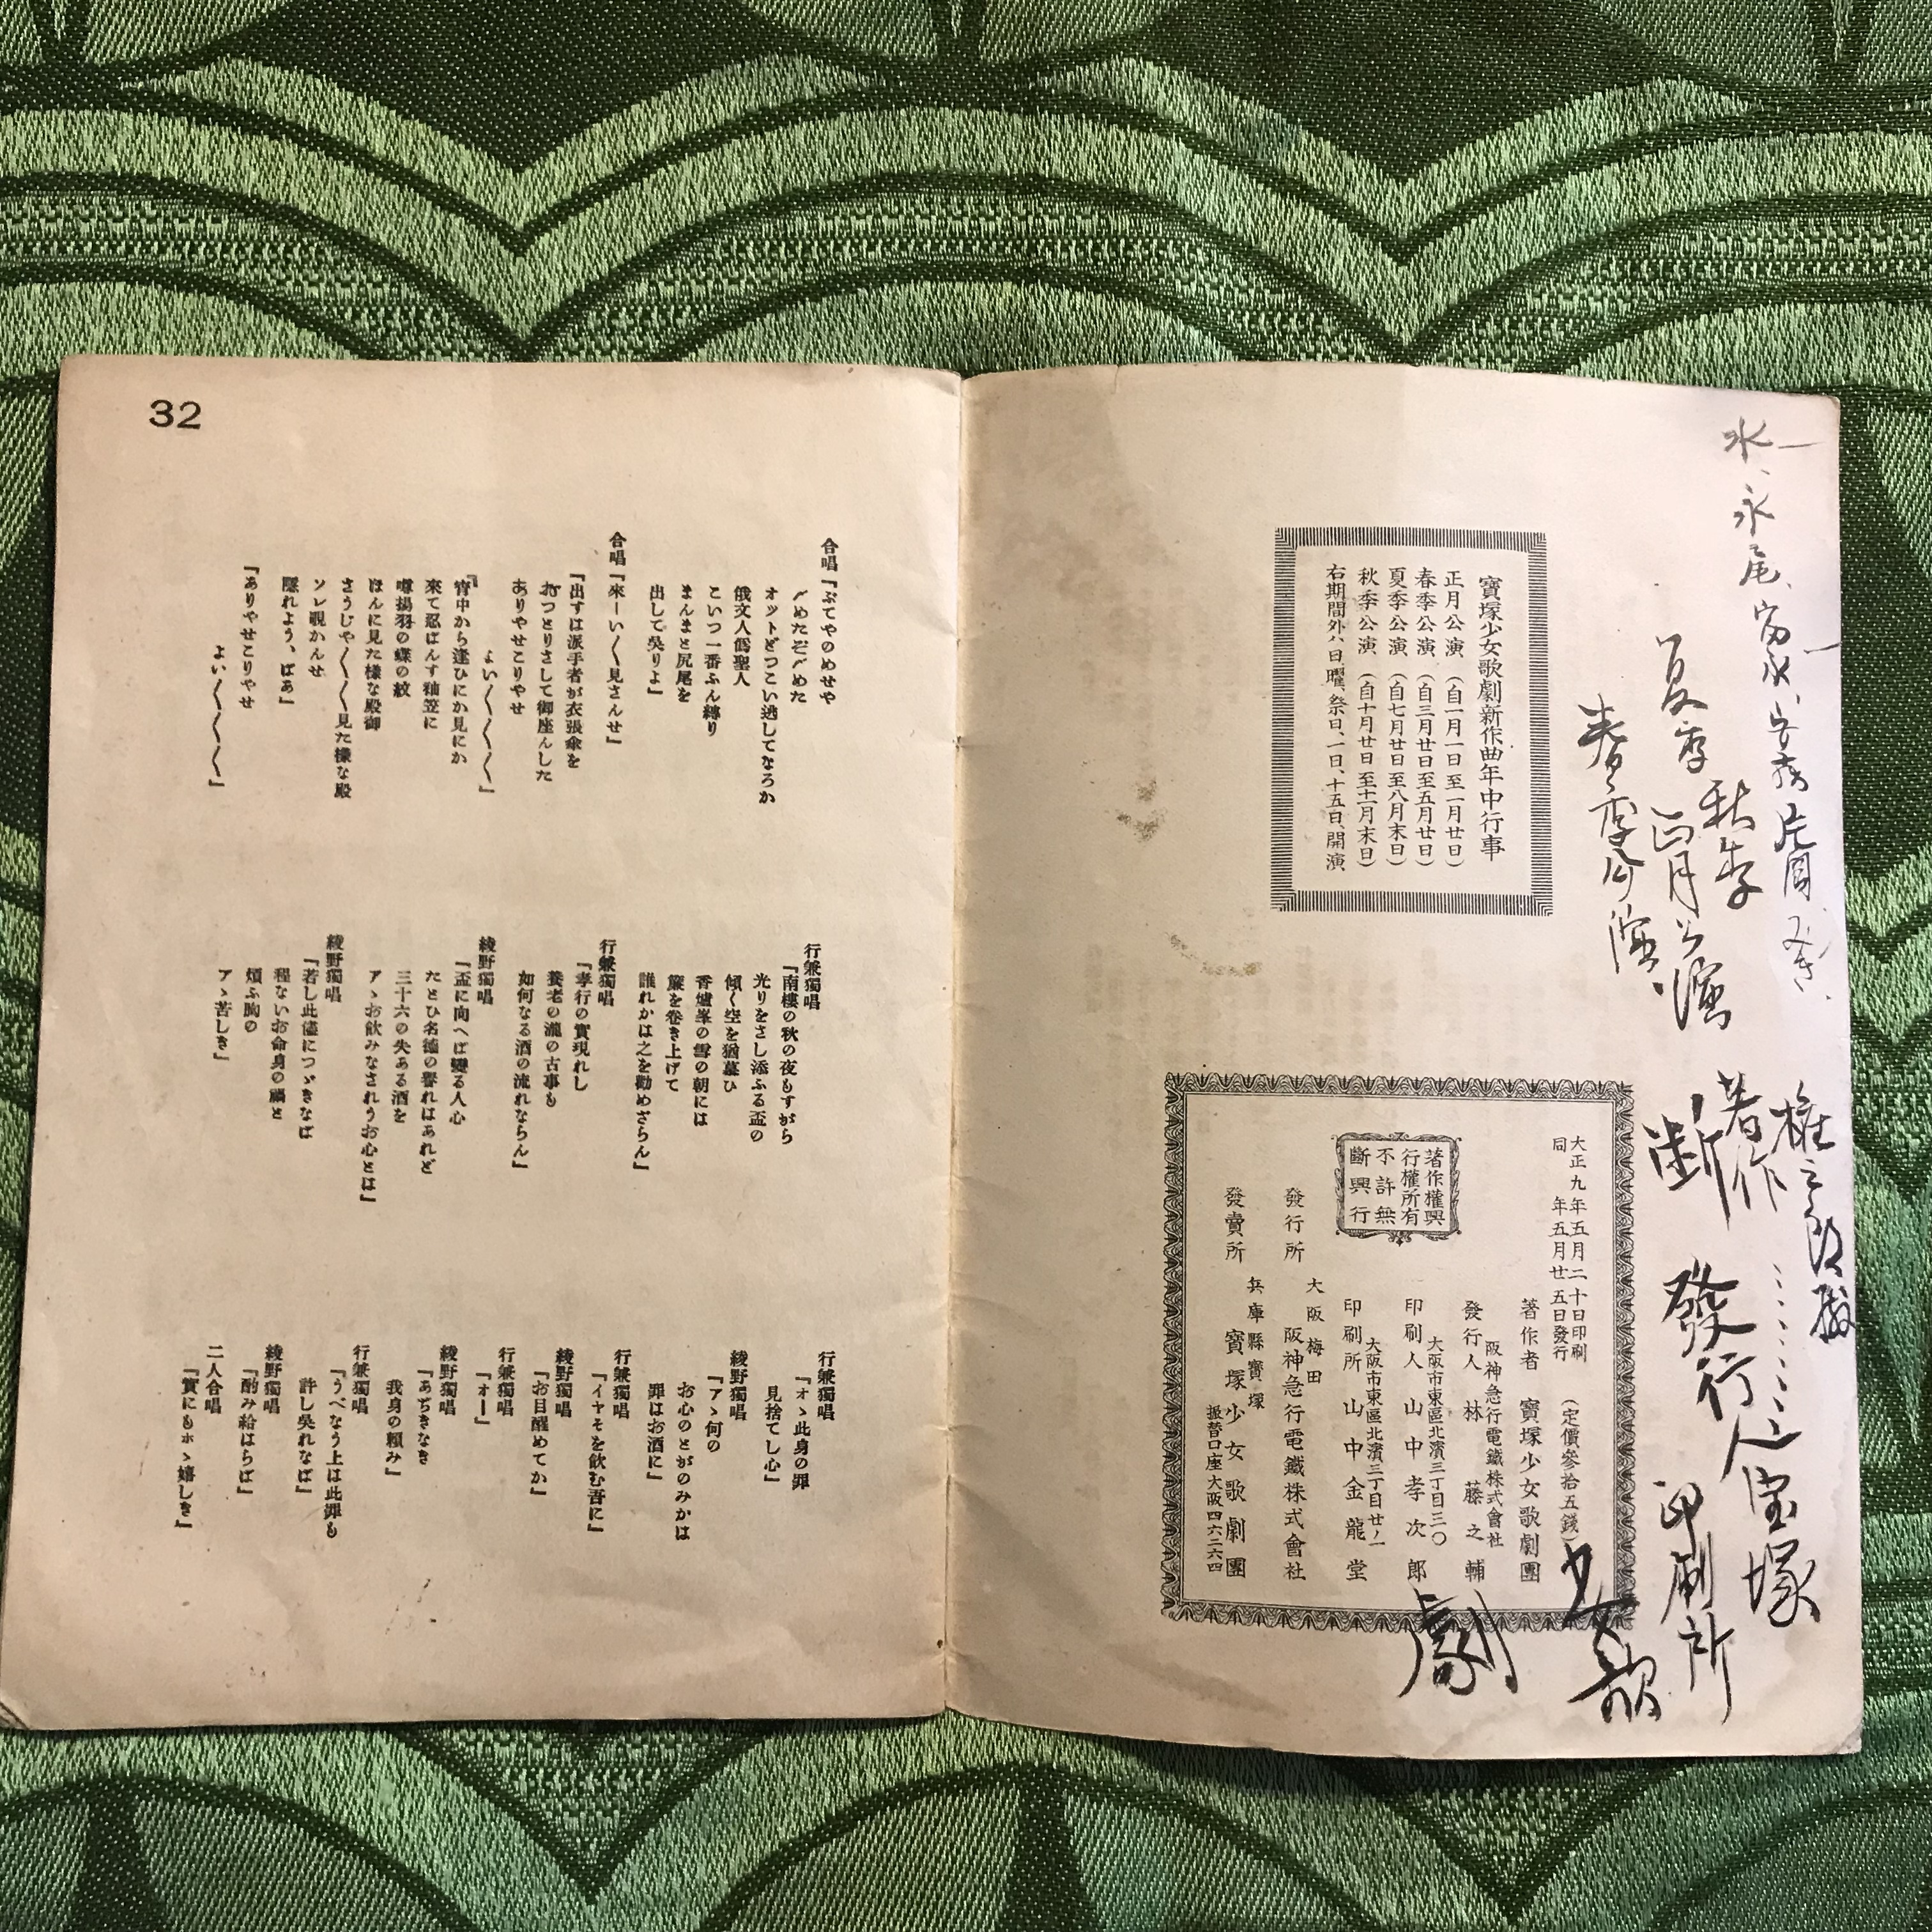 寶塚少女歌劇新作曲年中行事
正月公演（自一月一日至一月廿日）
春季公演（自三月廿日至五月廿日）
夏季公演（自七月廿日至八月末日）
秋季公演（自十月廿日至十一月末日）
右期間外ハ日曜、祭日、一日、十五日、開演
大正九年五月二十日印刷
同　年五月廿五日發行
（定價參拾五錢）
著作者　寶塚少女歌劇團
阪神急行電鐵株式會社
發行人　林藤之輔
大阪市東區北濱三丁目三〇
印刷人　山中孝次郎
大阪市東區北濱三丁目廿ノ一
印刷所　山中金龍堂
著作權興
行權所有
不許無
斷興行
大阪梅田
發行所　阪神急行電鐵株式會社
兵庫縣寶塚
發賣所　寶塚少女歌劇團
振替口座大阪四六二六四
水
永尾、富永、
夏季　秋季
正月公演
春季公演
著作
斷
發行人宝塚
印刷所
少女歌
劇
32
合唱『ぶてやのめせや
〆めたぞ〆めた
オットどつこい逃してなろか
俄文人僞聖人
こいつ一番ふん縛り
まんまと尻尾を
出して吳りよ』
合唱『來ーい〱見さんせ』
『出すは派手者が衣張傘を
おつとりさして御座んした
ありやせこりやせ
よい〱〱〱』
『宵中から逢ひにか見にか
來て忍ばんす釉笠に
噂揚羽の蝶の紋
ほんに見た樣な殿御
さうじや〱〱見た樣な殿
ソレ覗かんせ
隱れよう、ばあ』
『ありやせこりやせ
よい〱〱〱』
行兼獨唱
『南樓の秋の夜もすがら
光りをさし添ふる盃の
傾く空を猶慕ひ
香爐峯の雪の朝には
簾を卷き上げて
誰れかは之を勸めざらん』
行兼獨唱
『孝行の實現れし
養老の瀧の古事も
如何なる酒の流れならん』
綾野獨唱
『盃に向へば變る人心
たとひ名德の譽れはあれど
三十六の失ある酒を
アヽお飮みなされうお心とは』
綾野獨唱
『若し此儘につゞきなば
程ないお命身の禍と
煩ふ胸の
アヽ苦しき』
行兼獨唱
『オヽ此身の罪
見捨てし心』
綾野獨唱
『アヽ何の
お心のとがのみかは
罪はお酒に』
行兼獨唱
『イヤそを飮む吾に』
綾野獨唱
『お目醒めてか』
行兼獨唱
『オー』
綾野獨唱
『あぢきなき
我身の賴み』
行兼獨唱
『うべなう上は此罪も
許し吳れなば』
綾野獨唱
『酌み給はらば』
二人合唱
『實にもホヽ嬉しき』